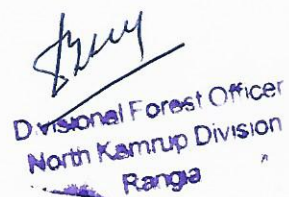 Divisional Forest Officer
North Kamrup Division
Rangia